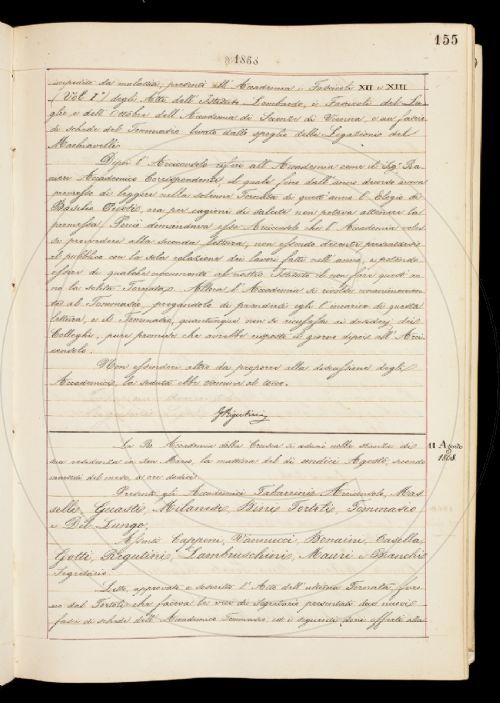 155
1868
impedito da malattia, presentò all'Accademia i Fascicoli XII e XIII
(Vol. I°) degli Atti dell'Istituto Lombardo, i Fascicoli del Lu-
glio e dell'Ottobre dell'Accademia di Scienze di Vienna, e un fascio
di schede del Tommaseo tirate dallo spoglio delle Legazioni del
Machiavelli.
Dipoi l'Arciconsolo riferì all'Accademia come il Sig. 
Accademico Corrispondente, il quale fino dall'anno decorso aveva
promesso di leggere nella solenne Tornata di quest'anno l'Elogio di
Basilio Puoti, ora per cagione di salute non poteva attenere la
promessa. Perciò domandava esso Arciconsolo che l'Accademia voles
se provvedere alla seconda lettura, non essendo decente presentarsi
al pubblico con la sola relazione dei lavori fatti nell'anno, e potendo
essere di qualche nocumento al nostro Istituto il non fare quest'an-
no la solita Tornata. Allora l'Accademia si rivolse unanimemen-
te al Tommaseo, pregandolo di prendersi egli l'incarico di questa
lettura, e il Tommaseo, quantunque non si ricusasse ai desiderj dei
Colleghi, pure promise che avrebbe risposto il giorno dipoi all'Arci-
consolo.
Non essendovi altro da proporre alla discussione degli
Accademici, la seduta ebbe termine al tocco.
G. Rigutini
La R. Accademia della Crusca si adunò nelle stanze di
sua residenza in San Marco, la mattina del dì undici Agosto, secondo
martedì del mese, a ore dodici.
11 Agosto
1868.
Presenti gli Accademici Tabarrini Arciconsolo, Mas-
selli, Guasti, Milanesi, Bini, Tortoli, Tommaseo
e Del Lungo.
Assenti Capponi, Vannucci, Bonaini, Casella,
Gotti, Rigutini, Lambruschini, Mauri e Bianchi
Segretario.
Letto, approvato e sottoscritto l'Atto dell'ultima Tornata, furo-
no dal Tortoli che faceva le veci di Segretario presentati due nuovi
fasci di schede dell'Accademico Tommaseo, ed i seguenti doni offerti alla